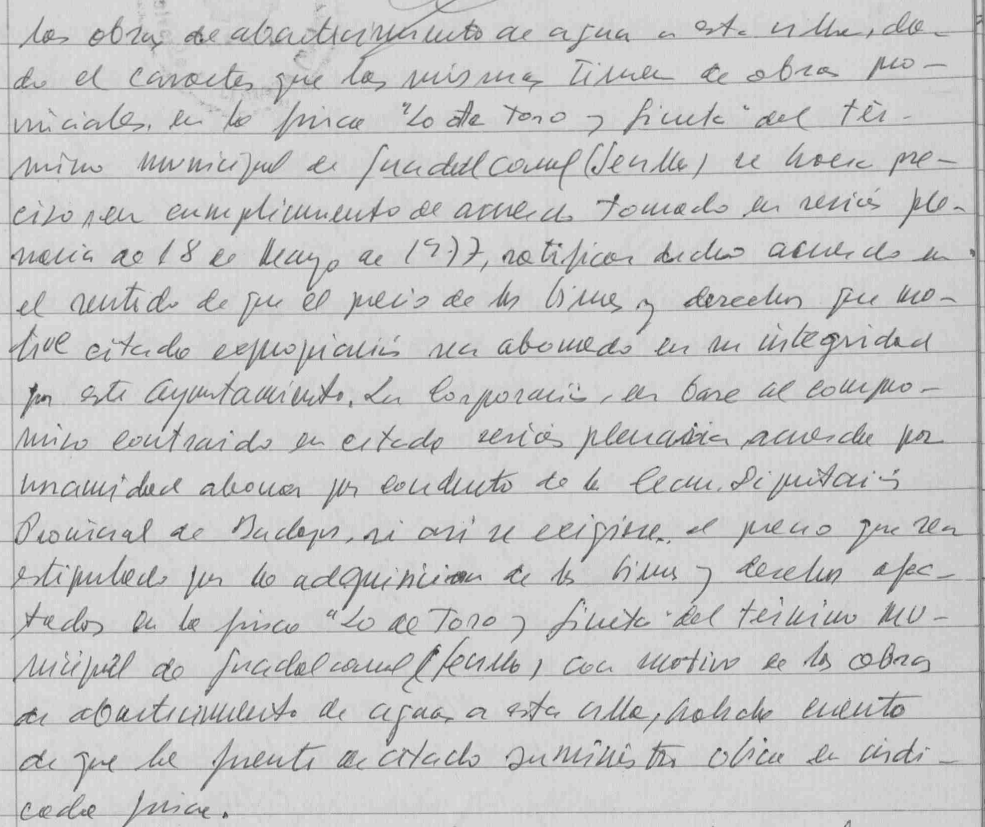 las obras de abastecimiento de agua a esta villa, da-
do el caracter que las mismas tienen de obras pro-
vinciales, en la finca "Lo de Toro y fineta" del tér-
mino municipal de Guadalcanal (Sevilla) se hace pre-
ciso, en cumplimiento de acuerdo tomado en sesión ple-
naria de 18 de Mayo de 1977, ratificar dicho acuerdo en
el sentido de que el precio de los bienes y derechos que mo-
tive citada expropiación sea abonado en su integridad
por este Ayuntamiento. La Corporación, en base al compro-
miso contraido en citada sesión plenaria, acuerda por
unanimidad abonar por conducto de la Excm. Diputación
Provincial de Badajoz, si así se exigiese, el precio que sea
estipulado por la adquisicion de los bienes y derechos afec-
tados en la finca "Lo de Toro y fineta" del término mu-
nicipal de Guadalcanal (Sevilla) con motivo de las obras
de abastecimiento de agua a esta villa, habida cuenta
de que la fuente de citado suministro ubica en indi-
cada finca.